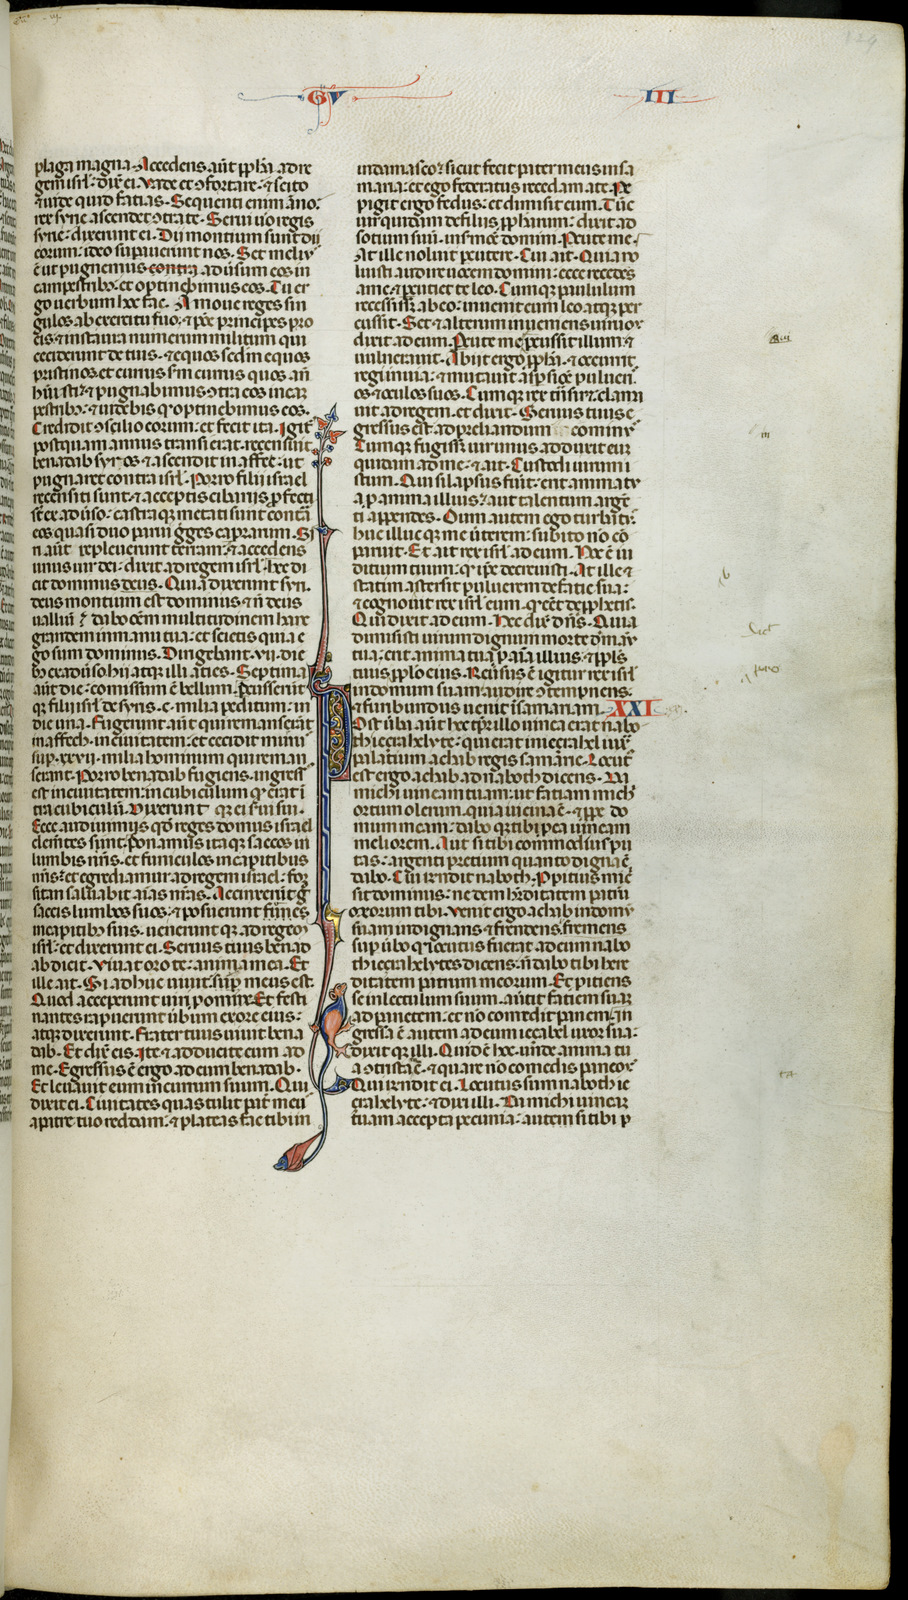 GV III
plaga magna. Accedens aut̄ ꝓph̄a ad re
gem isrl̄: dix̄ ei. Vade et ꝯfortare: ⁊ scito
⁊ uide quid facias. Sequenti enim āno:
rex syrie ascendet ꝯtra te. Serui uo regis
syrie: dixerunt ei. Dii montium sunt dii
eorum: ideo suꝑauerunt nos. Set meliꝰ
ē ut pugnemus contra aduersum eos in
campestribꝫ: et optinebimus eos. Tu er
go uerbum hoc fac. Amoue reges sin
gulos ab exercitu tuo: ⁊ pōe principes pro
eis ⁊ instaura numerum militum qui
ceciderunt de tuis. ⁊ equos sc̄dm equos
pristinos et currus sc̄m currus quos an̄
hūisti: ⁊ pugnabimus ꝯtra eos in cam
pestribꝫ: ⁊ uidebis qꝫ optinebimus eos.
Credidit ꝯsilio eorum: et fecit ita. Igit͛
postquam annus transierat: recensuit
benadab syros ⁊ ascendit in affec: ut
pugnaret contra isrl̄. Porro filii israel
recensiti sunt: ⁊ acceptis cibariis ꝓfecti
sūt ex aduͥso: castra qꝫ metati sunt contra
eos quasi duo parui greges caprarum. Si
ri aut̄ repleuerunt terram: ⁊ accedens
unus uir dei: dixit ad regem isrl̄. Hec di
cit dominus deus. Quia dixerunt syri.
deus montium est dominus ⁊ nō deus
uallium: dabo om̄em multitudinem hanc
grandem in manu tua: et scietis quia e
go sum dominus. Dirigebant. vii. die
bꝫ ex aduͥso hii atqꝫ illi acies. Septima
aut̄ die: comissum ē bellum. Percusserunt
qꝫ filii isrl̄ de syris. c. milia peditum: in
die una. Fugerunt aut̄ qui remanserāt
in affech. in ciuitatem: et cecidit murꝰ
suꝑ. xxvii. milia hominum qui reman
serant. Porro benadab fugiens. ingress͛
est in ciuitatem: in cubiculum qꝫ erat ī
tra cubiculū. Dixerunt qꝫ ei serui sui.
Ecce audiuimus qd̄ reges domus israel
clem̄tes sunt: ponamus itaqꝫ saccos in
lumbis nr̄is. et funiculos in capitibus
nr̄is: et egrediamur ad regem israel: for
sitan saluabit aīas nr̄as. Accinxerūt g̊
saccis lumbos suos: ⁊ posuerunt funes
in capitibꝫ suis. ueneruntqꝫ ad regem
isrl̄: et dixerunt ei. Seruus tuus benad
ab dicit. Viuat oro te: anima mea. Et
ille ait. Si adhuc uiuit: fr̄ meus est.
Quod acceperunt uiri ꝓ omine. Et festi
nantes rapuerunt ūbum ex ore eius:
atqꝫ dixerunt. Frater tuus uiuit bena
dab. Et dix̄ eis. Ite ⁊ adducite eum ad
me. Egressus ē ergo ad eum benadab.
Et leuauit eum in currum suum. Qui
dixit ei. Ciuitates quas tulit pat̄ meꝰ
a patre tuo reddam: ⁊ plateas fac tibi in
in damasco: sicut fecit pater meus in sa
maria: et ego federatus recedam a te. Pe
pigit ergo fedus: et dimisit eum. Tūc
uir quidam de filiis ꝓph̄arum: dixit ad
sotium suū. in ẜmōe domini. Percute me.
At ille noluit percutere. Cui ait. Quia no
luisti audire uocem domini: ecce recedes
a me: ⁊ percutiet te leo. Cumqꝫ paululum
recessiss& ab eo: inuenit eum leo atqꝫ per
cussit. Set ⁊ alterum inueniens uirum:
dixit ad eum. Percute me: ꝑcussit illum: ⁊
uulnerauit. Abiit ergo ꝓph̄a: ⁊ occurrit
regi in uia: ⁊ mutauit aspersiōe pulueri
os ⁊ oculos suos. Cumqꝫ rex trāsir&: clama
uit ad regem. et dixit. Seruus tuus e
gressus est ad preliandum cominꝰ
Cumqꝫ fugiss& uir unus: adduxit eum
quidam ad me: ⁊ ait. Custodi uirum i
stum. Qui si lapsus fuit̄: erit anima tu
a ꝓ anima illius: aut talentum argē
ti appendes. Dum autem ego turbatꝰ:
huc illuc qꝫ me ūterem: subito nō cō
paruit. Et ait rex isrl̄ ad eum. Hoc ē iu
ditium tuum: qd̄ ip̄e decreuisti. At ille
statim abstersit puluerem de facie sua:
⁊ cognouit rex isrl̄ eum. qꝫ eēt de ꝓphetis.
Qui dixit ad eum. Hec dic̄ dn̄s. Quia
dimisisti uirum dignum morte de manu
tua: erit anima tua ꝓ aīa illius: ⁊ ppl̄s
tuus ꝓ ppl̄o eius. Reuͥsus ē igitur rex isrl̄
in domum suam audire ꝯtempnens:
⁊ furibundus uenit in samariam. XXI
Post ūba aut̄ hec tpr̄e illo uinea erat nabo
th iezrahelyte: qui erat in iezrahel iux
palatium achab regis samarie. Locut͛
est ergo achab ad naboth dicens. Da
michi uineam tuam: ut faciam mich
ortum olerum. quia uicina ē. ⁊ ꝓpe do
mum meam: dabo qꝫ tibi ꝓ ea uineam
meliorem. Aut si tibi commodius pu
tas: argenti pretium quanto digna ē
dabo. Cui rn̄dit naboth. Ꝓpitius mi
sit dominus: ne dem hereditatem patrū
meorum tibi. Venit ergo achab in domū
suam indignans ⁊ frendens. fremens
suꝑ ūbo qd̄ locutus fuerat ad eum nabo
th iezrahelytes dicens: nō dabo tibi here
ditatem patrum meorum. Et proitiens
se in lectulum suum. auertit faciem suam
ad parietem: et nō comedit panem. In
gressa ē autem ad eum iezabel uxor sua:
dixit qꝫ illi. Quid ē hoc. unde anima tu
a ꝯtristata ē: ⁊ quare no comedis panem.
Qui rn̄dit ei. Locutus sum naboth ie
zrahelyte: ⁊ dixi illi. Da michi uineam
tuam accepta pecunia: autem si tibi ꝑ